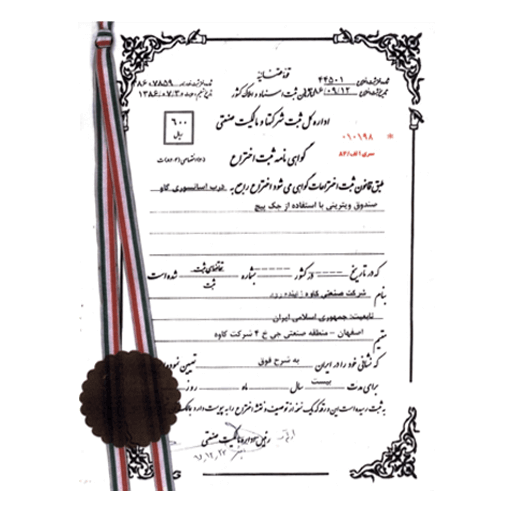 قوه قضائیه
سازمان ثبت اسناد و املاک کشور
۴۴۵۰۱
۸۶/۰۹/۱۲
۸۶۰۷۸۵۹
۱۳۸۶/۰۷/۳۰
اداره کل ثبت شرکتها و مالکیت صنعتی
۶۰۰
ریال
۰۱۰۱۹۸ *
سری ۱ الف/۸۲
گواهی نامه ثبت اختراع
طبق قانون ثبت اختراعات گواهی می شود اختراع راجع به درب آسانسوری گاو
صندوق ویترینی با استفاده از جک پیچ
که در تاریخ ــــ در کشور ــــ بشماره ــــ تقاضای ثبت شده است
ثبت
بنام شرکت صنعتی کاوه زاینده رود
تابعیت: جمهوری اسلامی ایران
مقیم اصفهان - منطقه صنعتی جی خ ۴ شرکت کاوه
که نشانی خود را در ایران به شرح فوق تعیین نموده
برای مدت بیست سال ماه روز
به ثبت رسیده است این ورقه که یک نسخه از توصیف و نقشه اختراع را به پیوست دارد
رئیس اداره مالکیت صنعتی